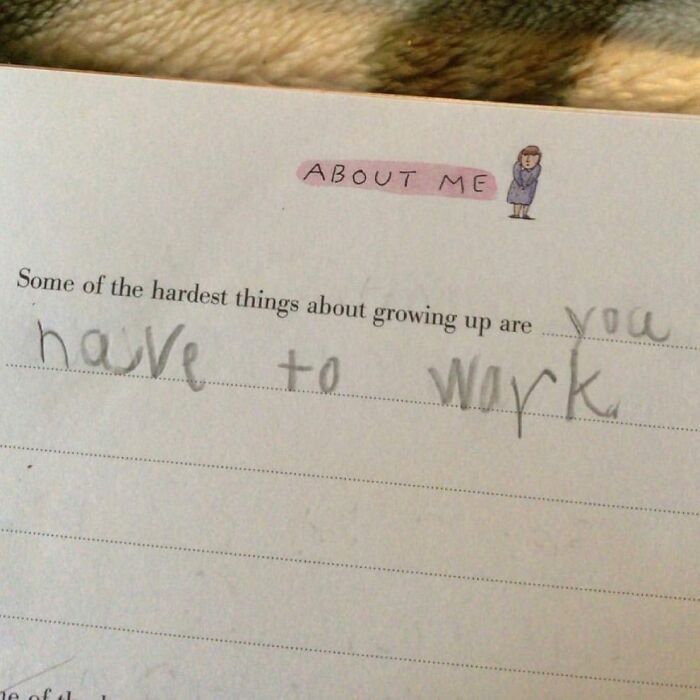 ABOUT ME
Some of the hardest things about growing up are you
have to work.